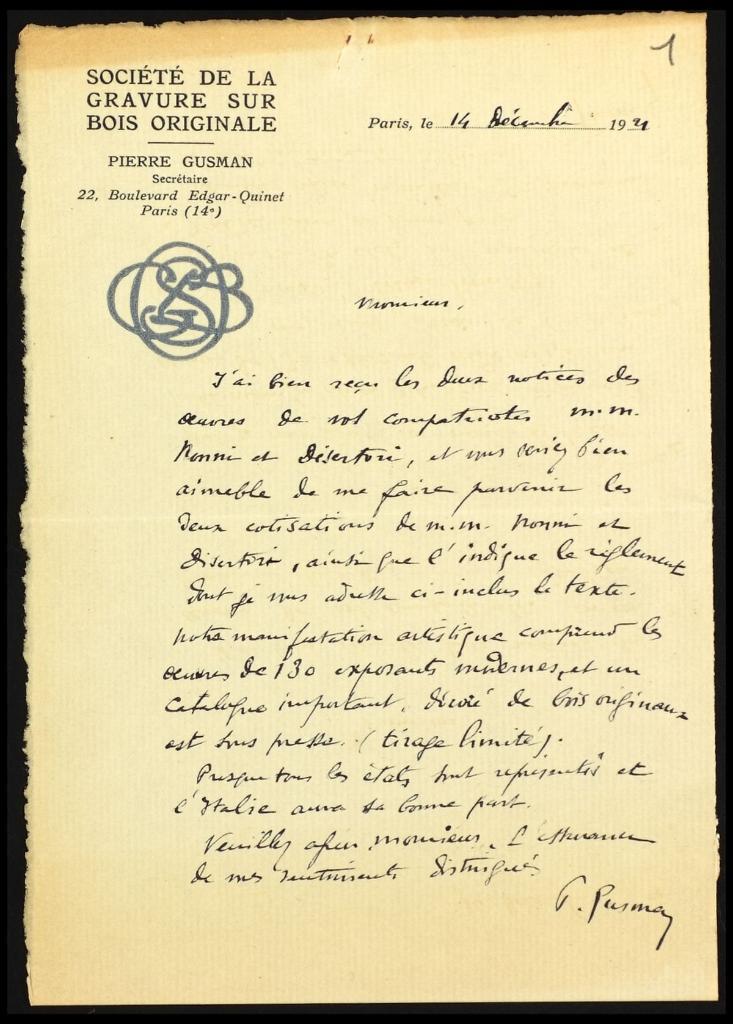 1
SOCIÉTÉ DE LA
GRAVURE SUR
BOIS ORIGINALE
PIERRE GUSMAN
Secrétaire
22, Boulevard Edgar-Quinet
Paris (14e)
Paris, le 14 Décembre 1921
GSB
Monsieur,
J'ai bien reçu les deux notices des
œuvres de vos compatriotes M.M.
Nonni et Disertori, et vous seriez bien
aimable de me faire parvenir les
deux cotisations de M.M. Nonni et
Disertori, ainsi que l'indique le règlement
dont je vous adresse ci-inclus le texte.
Notre manifestation artistique comprend les
œuvres de 130 exposants modernes, et un
catalogue important, décoré de bois originaux
est sous presse. (tirage limité).
Presque tous les états sont représentés et
l'Italie aura sa bonne part.
Veuillez agréer, Monsieur, l'assurance
de mes sentiments distingués
P. Gusman